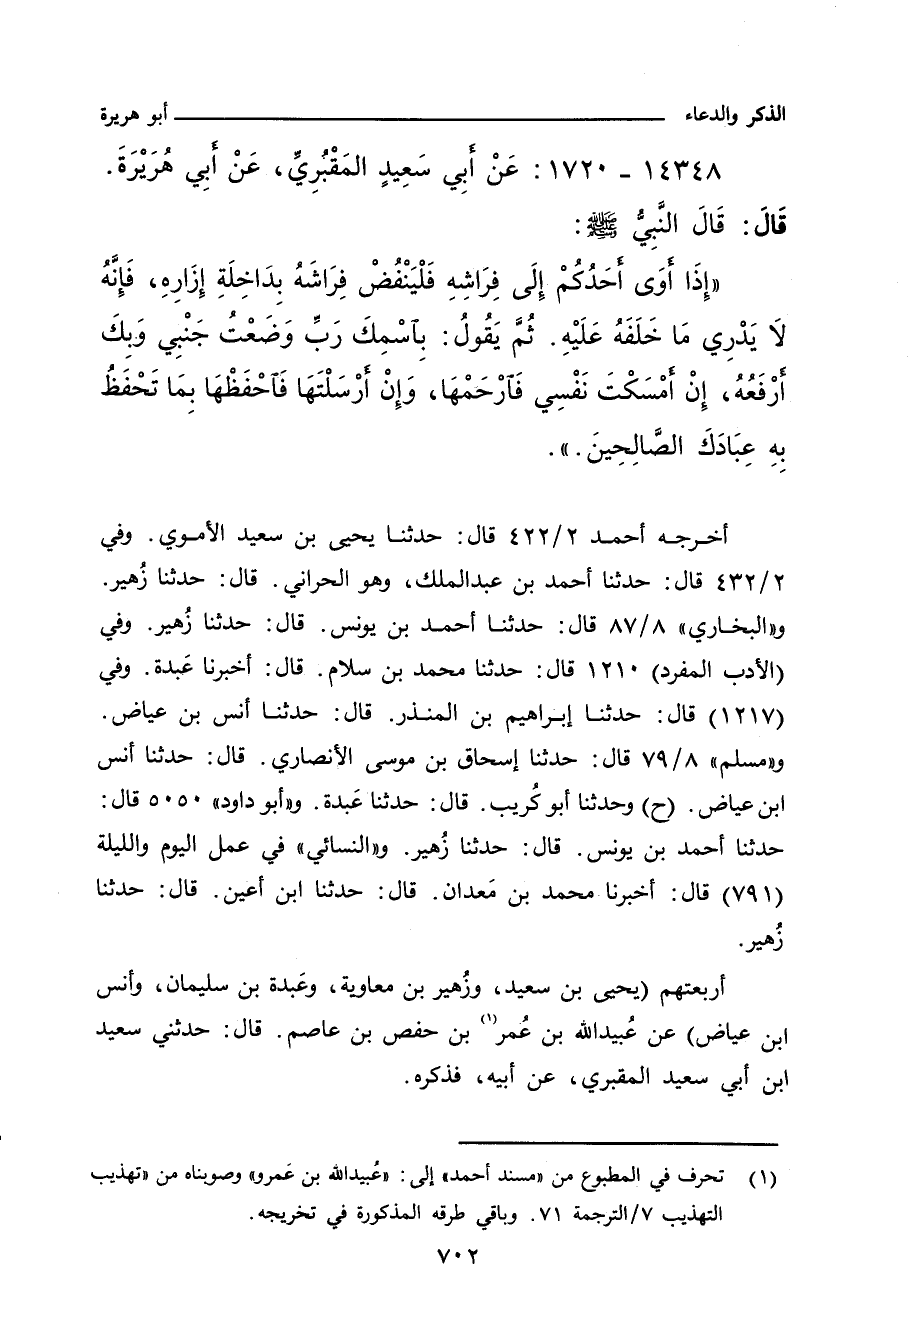 الذكر والدعاء ــــــــــــــــــــ أبو هريرة
١٤٣٤٨ - ١٧٢٠ : عَنْ أَبِي سَعِيدٍ المَقْبُرِيِّ، عَنْ أَبِي هُرَيْرَةَ.
قَالَ: قَالَ النَّبِيُّ ﷺ:
«إِذَا أَوَى أَحَدُكُمْ إِلَى فِرَاشِهِ فَلْيَنْفُضْ فِرَاشَهُ بِدَاخِلَةِ إِزَارِهِ، فَإِنَّهُ
لَا يَدْرِي مَا خَلَفَهُ عَلَيْهِ. ثُمَّ يَقُولُ: بِٱسْمِكَ رَبِّ وَضَعْتُ جَنْبِي وَبِكَ
أَرْفَعُهُ، إِنْ أَمْسَكْتَ نَفْسِي فَٱرْحَمْهَا، وَإِنْ أَرْسَلْتَهَا فَٱحْفَظْهَا بِمَا تَحْفَظُ
بِهِ عِبَادَكَ الصَّالِحِينَ.».
أخرجه أحمد ٤٢٢/٢ قال: حدثنا يحيى بن سعيد الأموي. وفي
٤٣٢/٢ قال: حدثنا أحمد بن عبدالملك، وهو الحراني. قال: حدثنا زُهير.
و«البخاري» ٨٧/٨ قال: حدثنا أحمد بن يونس. قال: حدثنا زُهير. وفي
(الأدب المفرد) ١٢١٠ قال: حدثنا محمد بن سلام. قال: أخبرنا عَبدة. وفي
(١٢١٧) قال: حدثنا إبراهيم بن المنذر. قال: حدثنا أنس بن عياض.
و«مسلم» ٧٩/٨ قال: حدثنا إسحاق بن موسى الأنصاري. قال: حدثنا أنس
ابن عياض. (ح) وحدثنا أبو كُريب. قال: حدثنا عَبدة. و«أبو داود» ٥٠٥٠ قال:
حدثنا أحمد بن يونس. قال: حدثنا زُهير. و«النسائي» في عمل اليوم والليلة
(٧٩١) قال: أخبرنا محمد بن مَعدان. قال: حدثنا ابن أعين. قال: حدثنا
زُهير.
أربعتهم (يحيى بن سعيد، وزُهير بن معاوية، وعَبدة بن سليمان، وأنس
ابن عياض) عن عُبيدالله بن عُمر(١) بن حفص بن عاصم. قال: حدثني سعيد
ابن أبي سعيد المقبري، عن أبيه، فذكره.
(١) تحرف في المطبوع من «مسند أحمد» إلى: «عُبيدالله بن عَمرو» وصوبناه من «تهذيب
التهذيب ٧/الترجمة ٧١. وباقي طرقه المذكورة في تخريجه.
٧٠٢